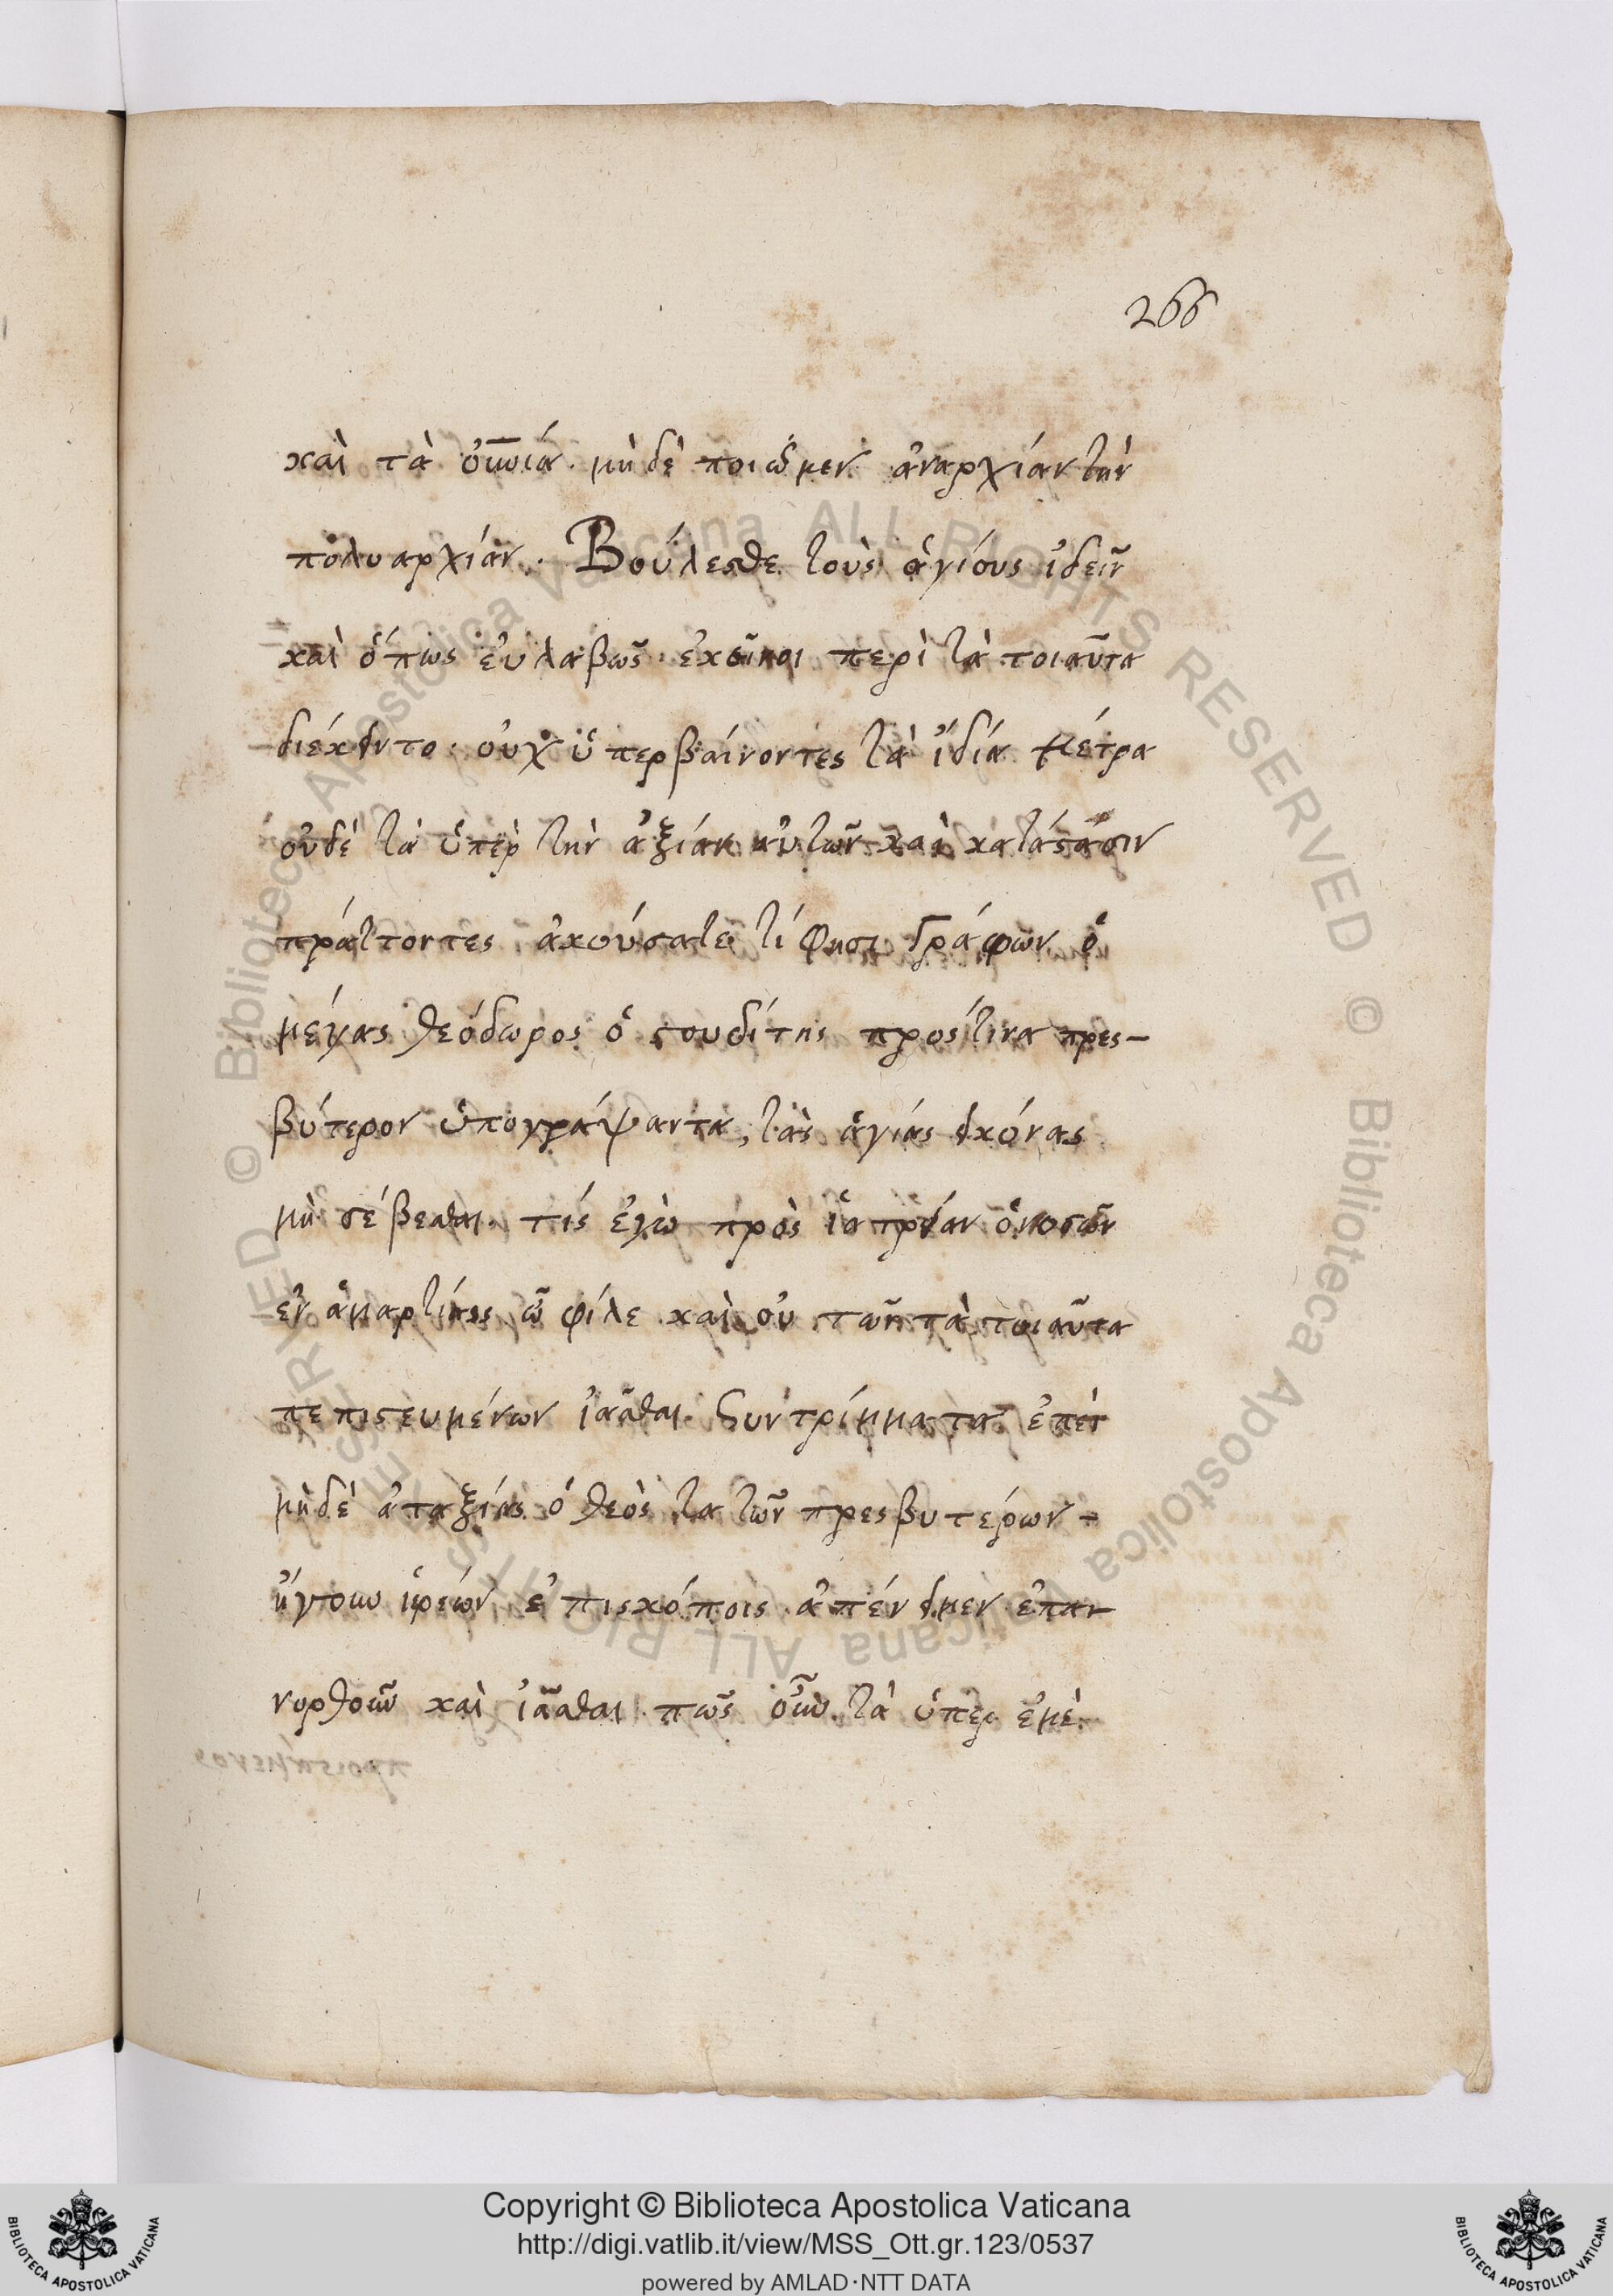 266
καὶ τὰ οὐράνια· μὴ δὲ ποιῶμεν ἀναρχίαν τὴν
πολυαρχίαν. Βούλεσθε τοὺς ἁγίους ἰδεῖν
καὶ ὅπως εὐλαβῶς ἐκεῖνοι περὶ τὰ τοιαῦτα
διέκειντο· οὐχ ὑπερβαίνοντες τὰ ἴδια μέτρα
οὐδὲ τὰ ὑπὲρ τὴν ἀξίαν αὐτῶν καὶ κατάστασιν
πράττοντες ἀκούσατε τί φησι γράφων ὁ
μέγας θεόδωρος ὁ στουδίτης πρός τινα πρεσ-
βύτερον ὑπογράψαντα, τὰς ἁγίας εἰκόνας
μὴ σέβεσθαι· τίς ἐγὼ πρὸς ἰατρείαν ὁ νοσῶν
ἐν ἁμαρτίαις ὦ φίλε καὶ οὐ τῶν τὰ τοιαῦτα
πεπιστευμένων ἰᾶσθαι συντρίμματα ἐπεὶ
μὴ δὲ ἀταξίας ὁ θεὸς τὰ τῶν πρεσβυτέρων -
ἤγουν ἱερέων ἐπισκόποις ἀπένειμεν ἐπαν
νορθοῦν καὶ ἰᾶσθαι· πῶς οὖν τὰ ὑπὲρ ἐμὲ
Copyright © Biblioteca Apostolica Vaticana
http://digi.vatlib.it/view/MSS_Ott.gr.123/0537
powered by AMLAD·NTT DATA
BIBLIOTECA APOSTOLICA VATICANA
BIBLIOTECA APOSTOLICA VATICANA